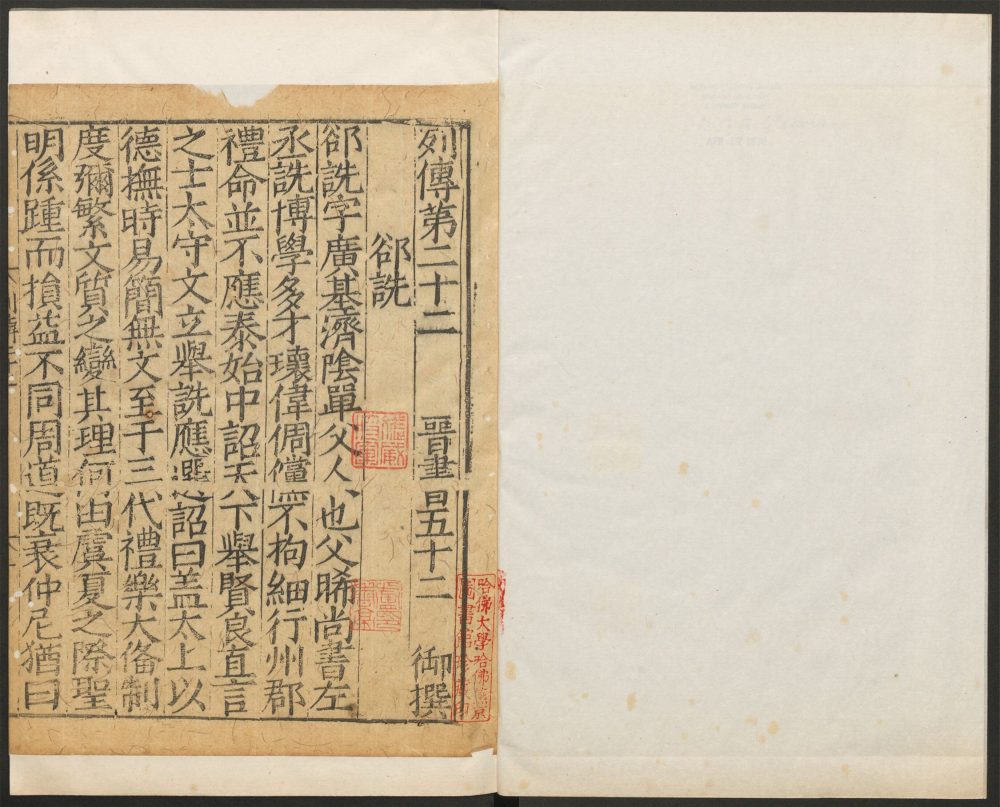 列傳第二十二 晉書 五十二 御撰
郤詵
郤詵字廣基濟陰單父人也父晞尚書左
丞詵博學多才瓌偉倜儻不拘細行州郡
禮命並不應泰始中詔天下舉賢良直言
之士太守文立舉詵應選詔曰蓋太上以
德撫時易簡無文至于三代禮樂大俻制
度彌繁文質之變其理何由虞夏之際聖
明係踵而損益不同周道既衰仲尼猶曰
哈佛大學哈佛燕京
圖書館珍藏印